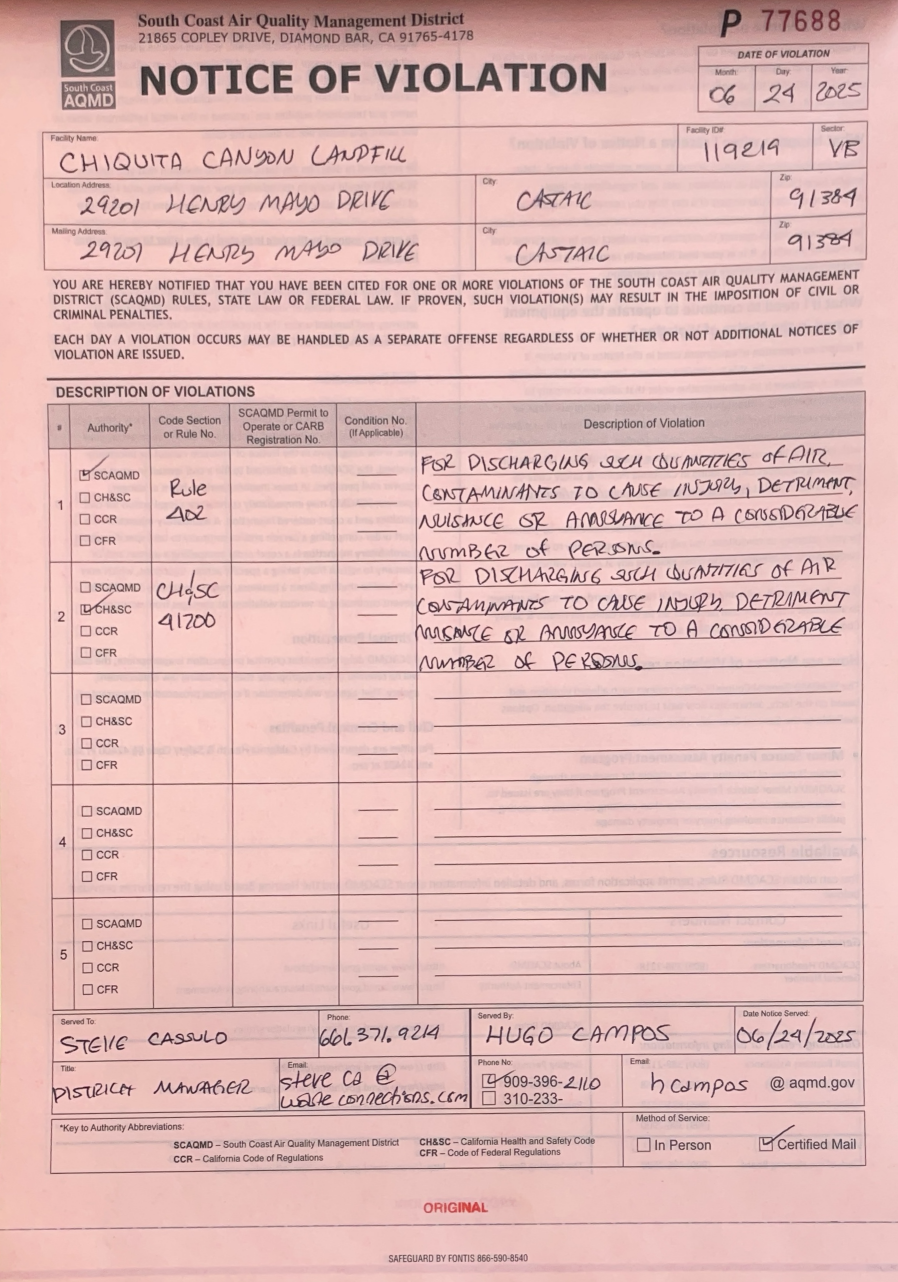 South Coast Air Quality Management District
21865 COPLEY DRIVE, DIAMOND BAR, CA 91765-4178
South Coast
AQMD
NOTICE OF VIOLATION
P 77688
DATE OF VIOLATION
Month: Day Year:
06 24 2025
Facility Name: Facility ID#: Sector:
CHIQUITA CANYON LANDFILL 119219 VB
Location Address: City Zip:
29201 HENRY MAYO DRIVE CASTAIC 91384
Mailing Address: City: Zip:
29201 HENRY MAYO DRIVE CASTAIC 91384
YOU ARE HEREBY NOTIFIED THAT YOU HAVE BEEN CITED FOR ONE OR MORE VIOLATIONS OF THE SOUTH COAST AIR QUALITY MANAGEMENT
DISTRICT (SCAQMD) RULES, STATE LAW OR FEDERAL LAW. IF PROVEN, SUCH VIOLATION(S) MAY RESULT IN THE IMPOSITION OF CIVIL OR
CRIMINAL PENALTIES.
EACH DAY A VIOLATION OCCURS MAY BE HANDLED AS A SEPARATE OFFENSE REGARDLESS OF WHETHER OR NOT ADDITIONAL NOTICES OF
VIOLATION ARE ISSUED.
DESCRIPTION OF VIOLATIONS
# Authority* Code Section or Rule No. SCAQMD Permit to Operate or CARB Registration No. Condition No. (If Applicable) Description of Violation
1
SCAQMD
CH&SC
CCR
CFR
Rule
402
FOR DISCHARGING SUCH QUANTITIES OF AIR
CONTAMINANTS TO CAUSE INJURY, DETRIMENT,
NUISANCE OR ANNOYANCE TO A CONSIDERABLE
NUMBER OF PERSONS.
2
SCAQMD
CH&SC
CCR
CFR
CH&SC
41700
FOR DISCHARGING SUCH QUANTITIES OF AIR
CONTAMINANTS TO CAUSE INJURY, DETRIMENT
NUISANCE OR ANNOYANCE TO A CONSIDERABLE
NUMBER OF PERSONS.
3
SCAQMD
CH&SC
CCR
CFR
4
SCAQMD
CH&SC
CCR
CFR
5
SCAQMD
CH&SC
CCR
CFR
Served To: Phone: Served By: Date Notice Served:
STEVE CASSULO 661.371.9214 HUGO CAMPOS 06/24/2025
Title: Email: Phone No: Email:
DISTRICT MANAGER
steve ca @
waste connections.com
909-396-2110
310-233-
hcampos @ aqmd.gov
*Key to Authority Abbreviations:
SCAQMD – South Coast Air Quality Management District CH&SC – California Health and Safety Code
CCR – California Code of Regulations CFR – Code of Federal Regulations
Method of Service:
In Person Certified Mail
ORIGINAL
SAFEGUARD BY FONTIS 866-590-8540